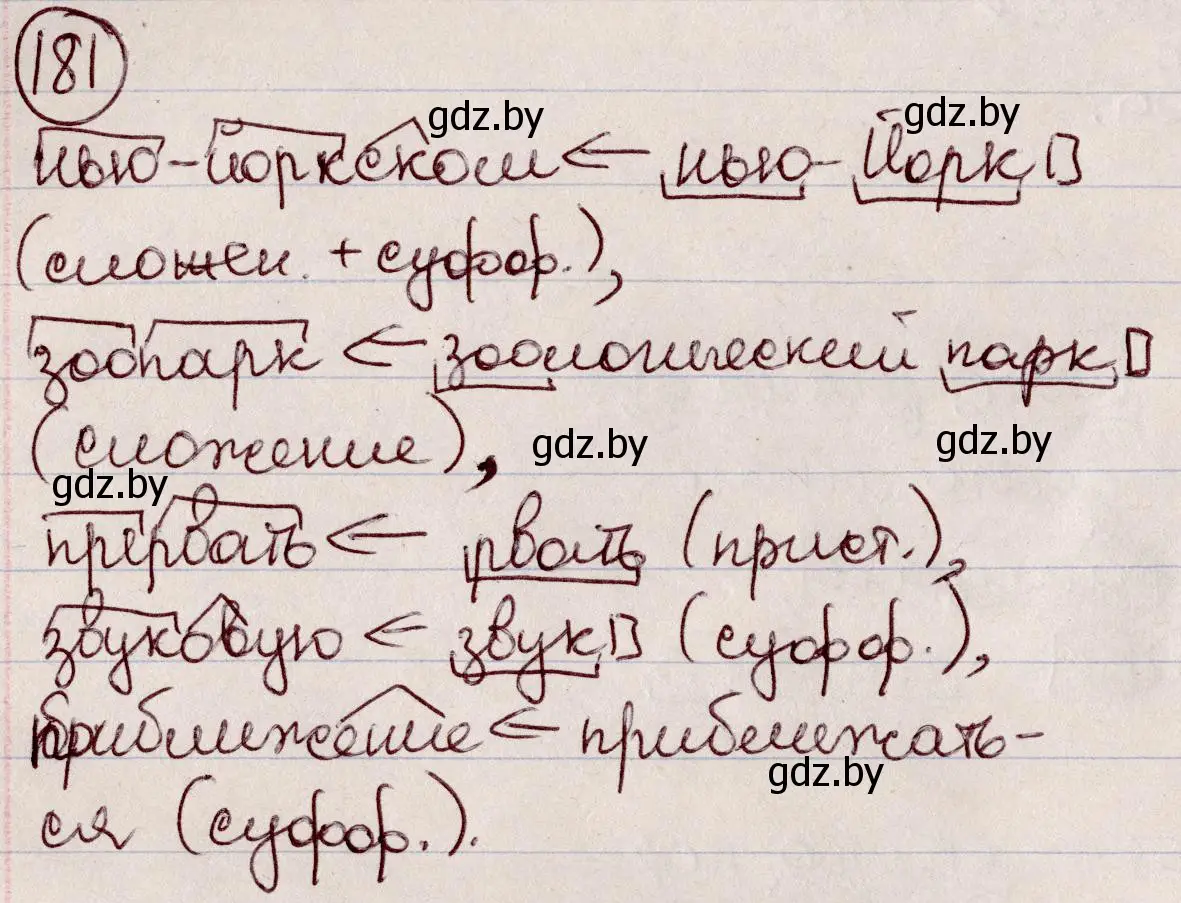 181
gdz.by
gdz.by
нью-йоркском ← нью-Йорк
(сложен. + суфф.),
зоопарк ← зоологический парк
(сложение),
gdz.by
gdz.by
gdz.by
прервать ← рвать (прист.),
звуковую ← звук (суфф.),
приближение ← приближать-
gdz.by
ся (суфф.).